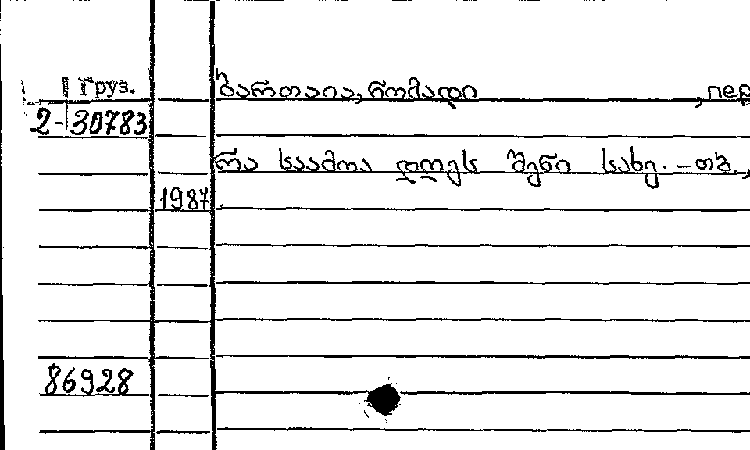 Груз. ბართაია, რომადი , пер
2-30783
რა საამოა დღეს შენი სახე. – თბ.,
1987.
86928